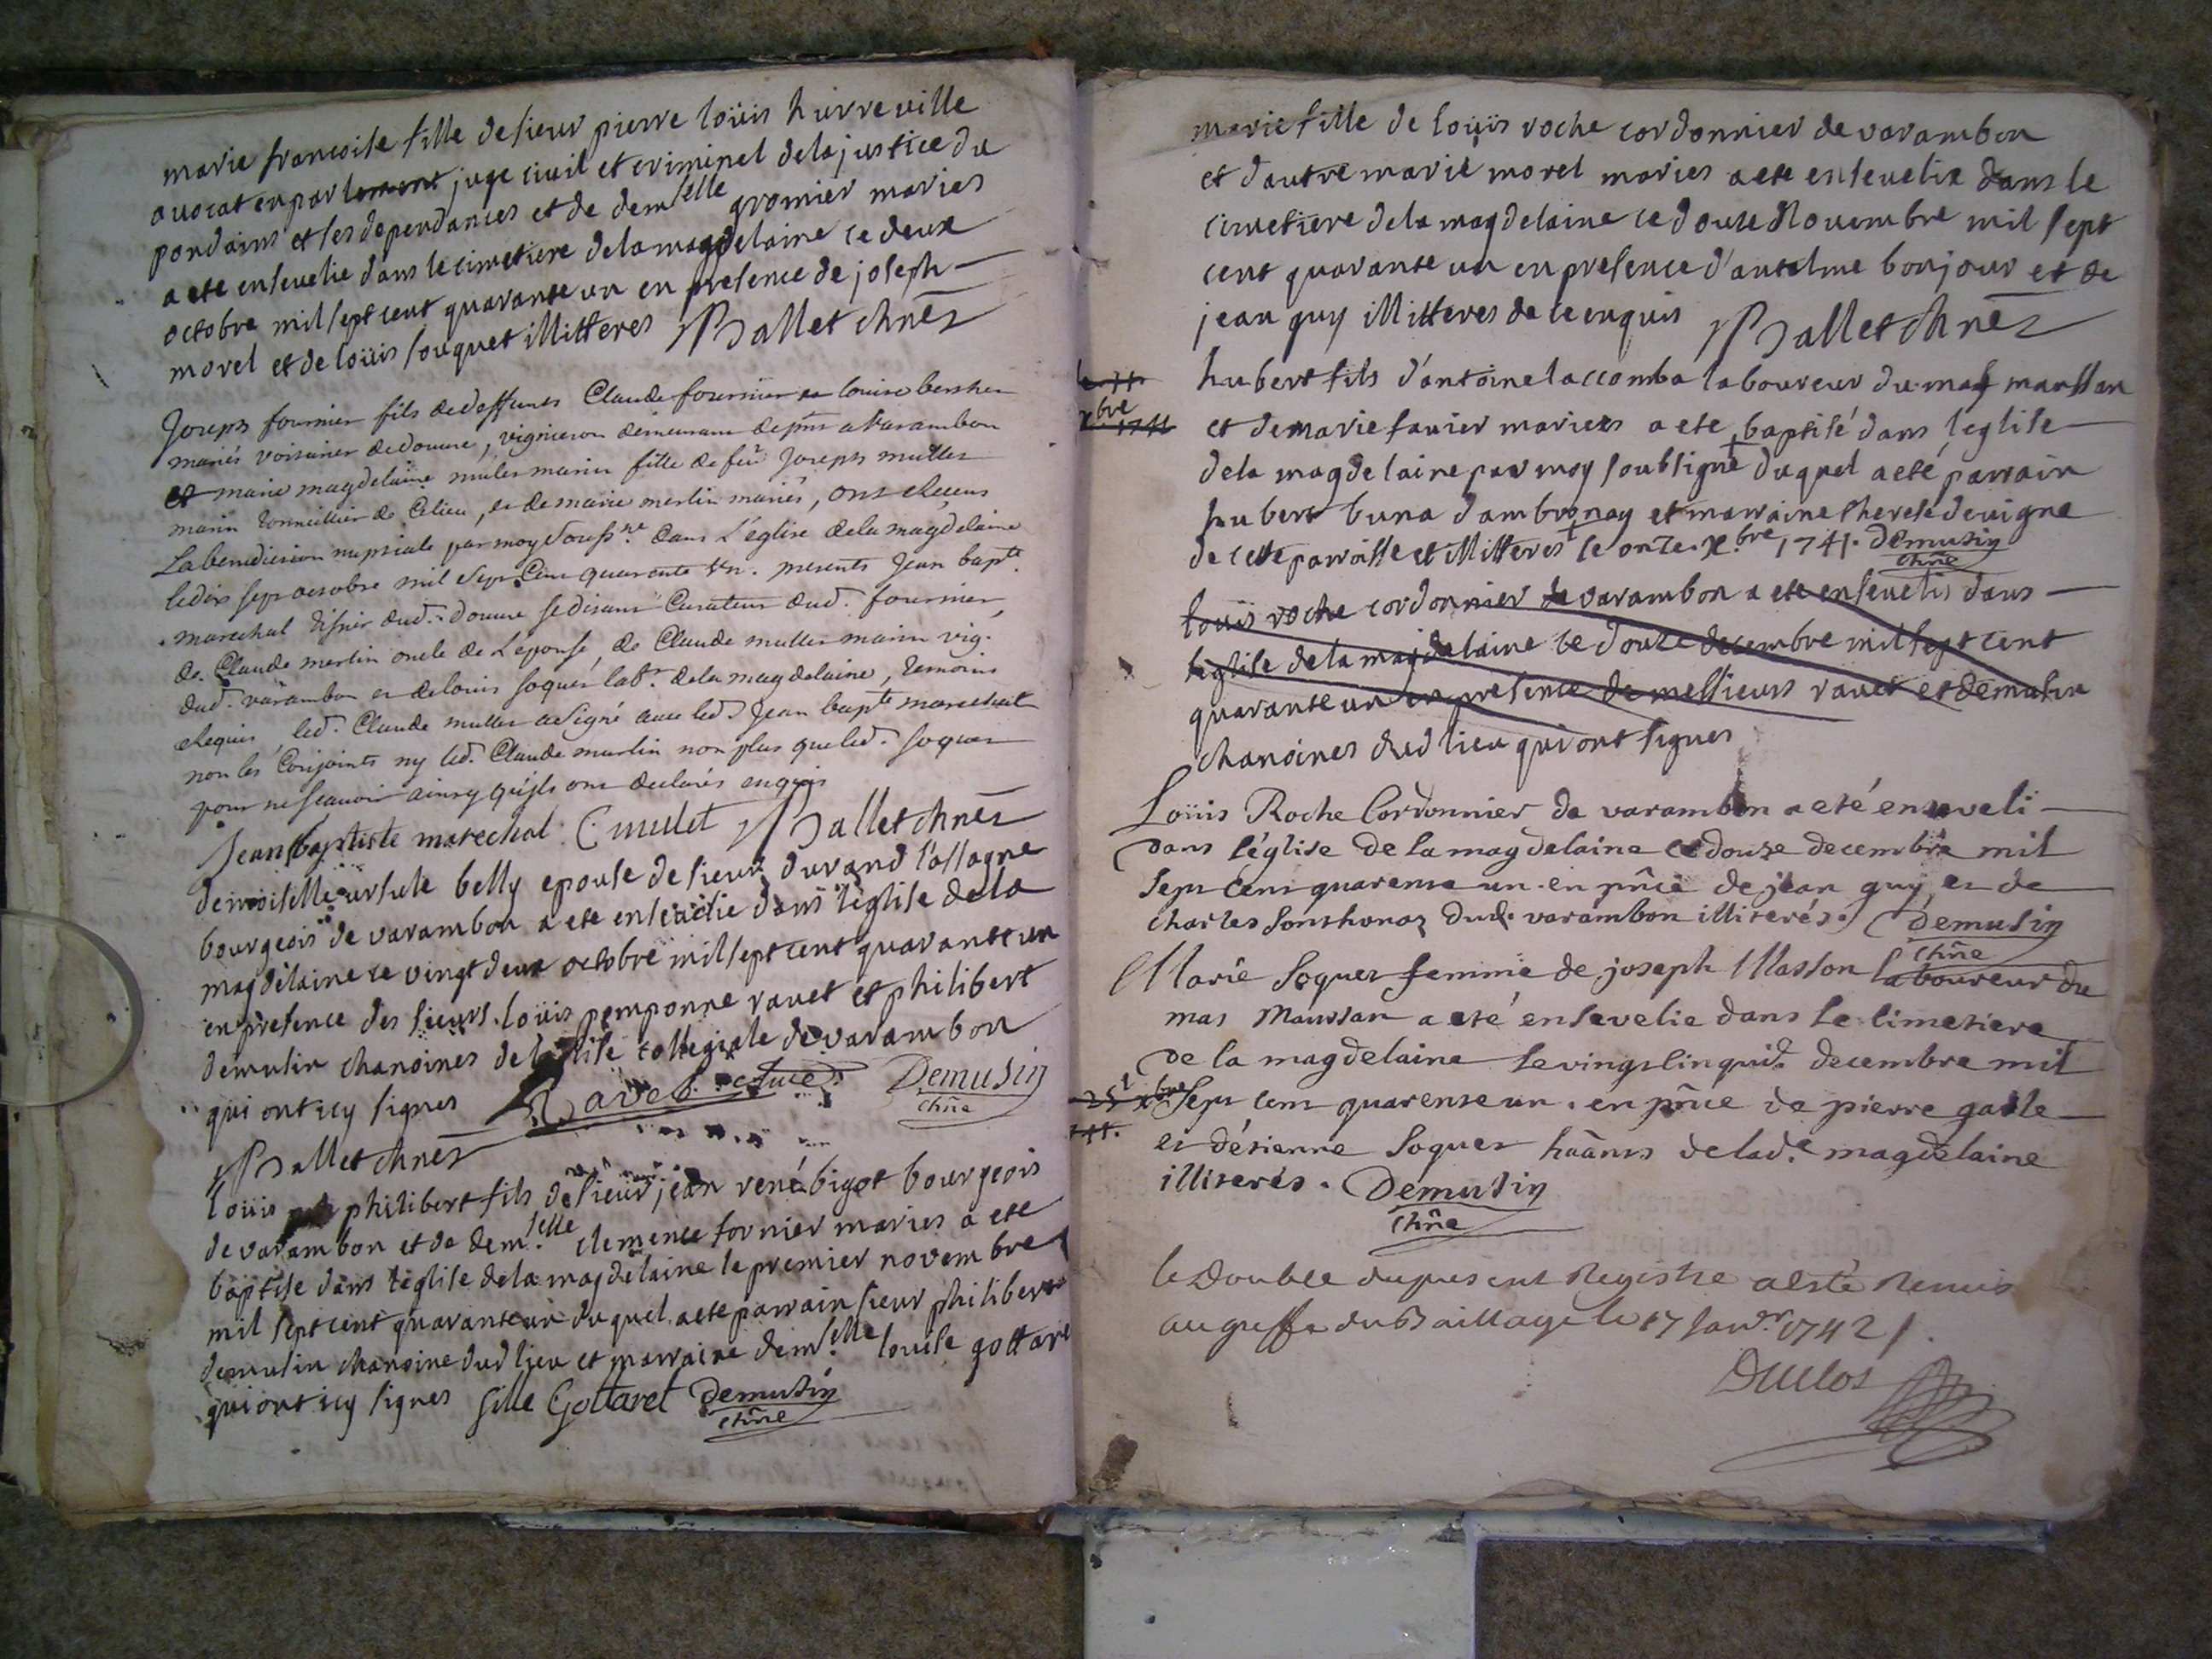 marie francoise fille de sieur pierre loüis hurreville
avocat en parlement juge civil et criminel de la justice du
pondains et ses dependances et de dem.selle gromier maries
a ete ensevelie dans le cimetiere dela magdelaine ce deux
octobre mil sept cent quarante un en presence de joseph
morel et de loüis souquet illitteres Ballet chne
Joseph fournier fils de deffunts Claude fournier et louise
mariés voiturier de douvre, vigneron demeurant a Varambon
et marie magdelaine mulet marin fille de feu Joseph mullet
marin tonnellier de Celieu, et de marie merlin mariés, ont
La benediction nuptiale par moy soussné dans L'église dela magdelaine
le dix sept octobre mil sept Cent quarante un. presents Jean bapt.
marechal dud. douvre se disant Curateur dud. fournier,
de Claude merlin oncle de L'epouse, de Claude mullet marin vig.
dud. varambon et de louis soquet labr. dela magdelaine, temoins
requis, led. Claude mullet a signé avec led. Jean bapte marechal
non les Conjoints ny led. Claude merlin non plus que led. soquet
pour ne scavoir ainsy qu'ils ont declarés enquis
Jean baptiste marechal C mulet Ballet chne
demoiselle ursule belly epouse de sieur durand l'assagne
bourgeois de varambon a ete ensevelie dans l'eglise dela
magdelaine ce vingt deux octobre mil sept cent quarante un
en presence des sieurs loüis pomponne ravet et philibert
demusin chanoines de l'eglise collegiale de varambon
qui ont icy signes Ravet curé Demusin
chne
Ballet chne
loüis philibert fils de sieur jean rené bigot bourgeois
de varambon et de dem.selle clemence fornier maries a ete
baptise dans l'eglise dela magdelaine le premier novembre
mil sept cent quarante un duquel a ete parrain sieur philibert
demusin chanoine dud lieu et marraine dem.selle louise gottare
qui ont icy signes Gottaret Demusin
chne
marie fille de loüis roche cordonnier de varambon
et d'autre marie morel maries a ete ensevelie dans le
cimetiere dela magdelaine ce douze Novembre mil sept
cent quarante un en presence d'antelme bonjour et de
jean guy illitteres de ce enquis Ballet chne
xbre
1741
hubert fils d'antoine laccomba laboureur du mas manssan
et de marie favier maries a ete baptisé dans l'eglise
dela magdelaine par moy soubsigné duquel a eté parrain
hubert buna d'ambronay et marraine therese devigne
de cette parroisse et illitteres le onze xbre 1741. Demusin
chne
louis roche cordonnier de varambon a ete ensevelis dans
leglise dela magdelaine ce douze decembre mil sept cent
quarante un en presence de messieurs ravet et demusin
chanoines dud lieu qui ont signes
Loüis Roche Cordonnier de varambon a eté enseveli
dans l'église de la magdelaine ce douze decembre mil
sept cent quarente un. en pnce de jean guy et de
charles sonthonaz dud. varambon illiterés. Demusin
chne
Marie soquet femme de joseph Masson laboureur du
mas Manssan a eté ensevelie dans le cimetiere
de la magdelaine le vingt cinquie. decembre mil
25 xbre
741.
sept cent quarente un. en pnce de pierre
et d'étienne soquet haânts de lade. magdelaine
illiterés. Demusin
chne
le Double du present Registre a esté Remis
au greffe du Baillage le 17 Janvr 1742
Duclos